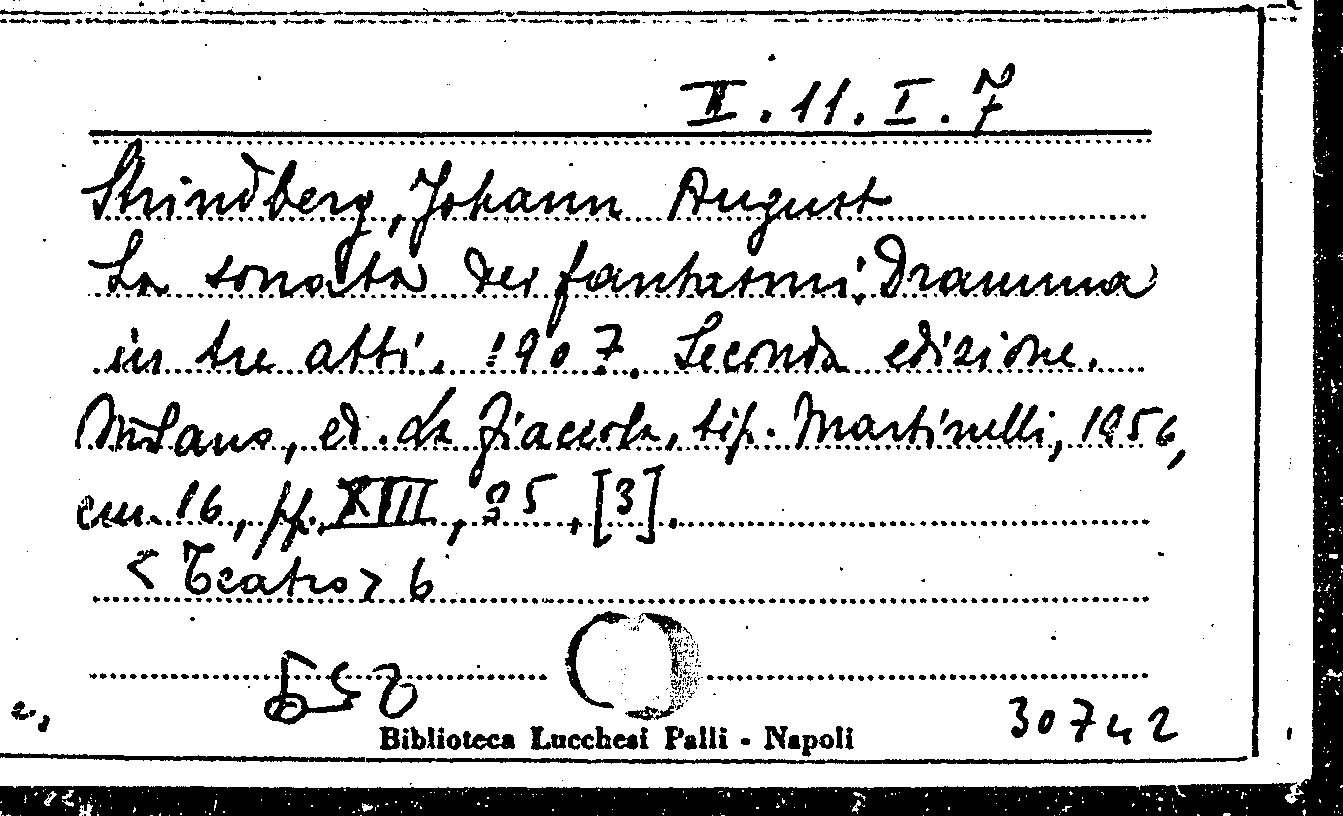 II.11.I.7
Strindberg, Johann August
La sonata dei fantasmi. Dramma
in tre atti. 1907. Seconda edizione.
Milano, ed. La Fiaccola, tip. Martinelli, 1956,
cm. 16, pp. XIII, 25, [3].
<Teatro> 6
Biblioteca Lucchesi Palli - Napoli
30742